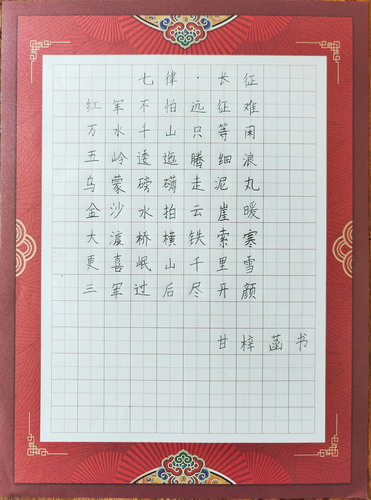 七律·长征
红军不怕远征难
万水千山只等闲
五岭逶迤腾细浪
乌蒙磅礴走泥丸
金沙水拍云崖暖
大渡桥横铁索寒
更喜岷山千里雪
三军过后尽开颜
甘梓菡书